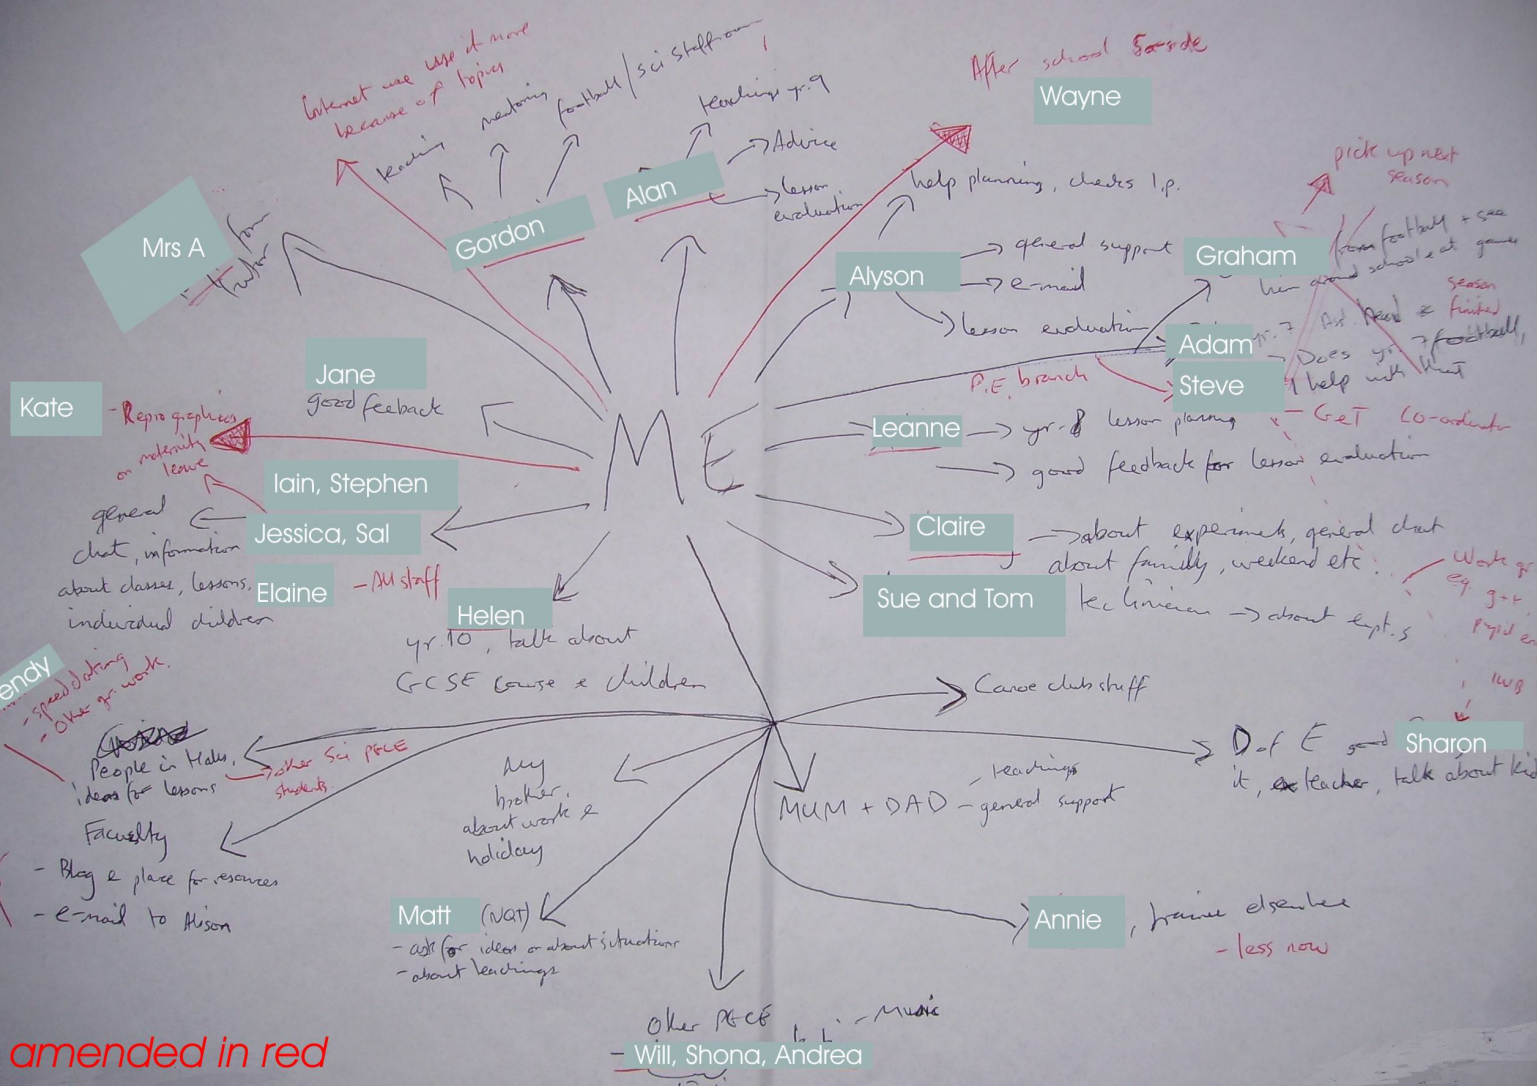 Internet use use it more
because of topics
teaching
mentoring
football/sci staffroom
teaching yr.9
Advice
lesson
evaluation
After school
Wayne
Mrs A
form
tutor
Gordon
Alan
help planning, checks l.p.
Alyson
general support
e-mail
lesson evaluation
pick up next
season
Graham
from football + see
him around school & at games
season
finished
Adam
yr.7
head
Steve
Does yr 7 football,
I help with that
P.E. branch
G&T Co-ordinator
Jane
good feeback
Kate
- Reprographics
on maternity
leave
ME
Leanne
yr.8 lesson planning
good feedback for lesson evaluation
Iain, Stephen
Jessica, Sal
general
chat, information
about classes, lessons,
individual children
Elaine
- All staff
Claire
about experiments, general chat
about family, weekend etc.
Sue and Tom
technician → about expt.s
Work gr
eg. g+t
IWB
Helen
yr.10, talk about
GCSE course & children
endy
- speed dating
- Other gr work.
People in Hales,
ideas for lessons
other Sci PGCE
students.
Faculty
- Blog & place for resources
- e-mail to Alison
My
brother,
about work &
holiday
Canoe club stuff
MUM + DAD
- teachings
- general support
D of E good
Sharon
it, ex teacher, talk about kid
Matt (NQT)
- ask for ideas or about situations
- about teachings
Annie, trainee elsewhere
- less now
Other PGCE
- Music
- Will, Shona, Andrea
amended in red